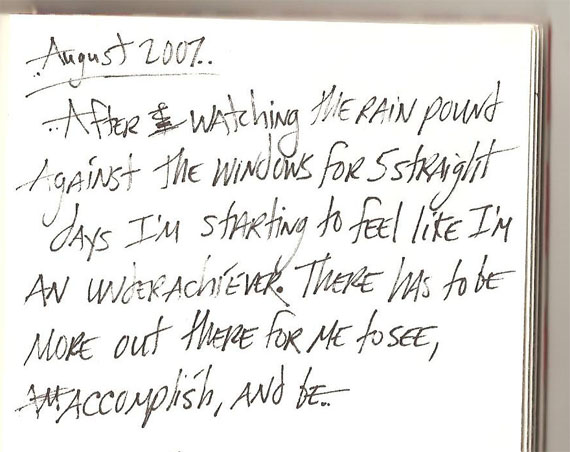 August 2007..
..After watching the rain pound
against the windows for 5 straight
days I'm starting to feel like I'm
an underachiever. There has to be
more out there for me to see,
accomplish, and be..